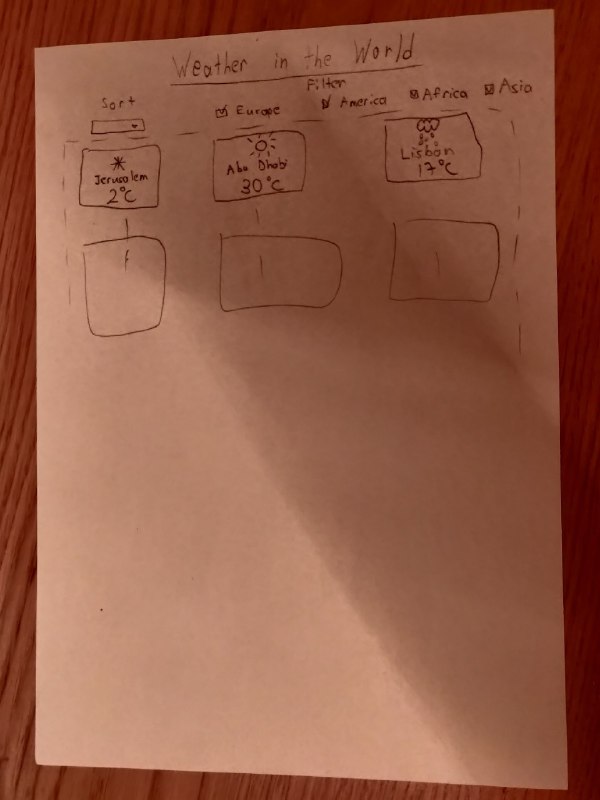 Weather in the World
Filter
Sort
Europe
America
Africa
Asia
Jerusalem
2°C
Abu Dhabi
30°C
Lisbon
17°C